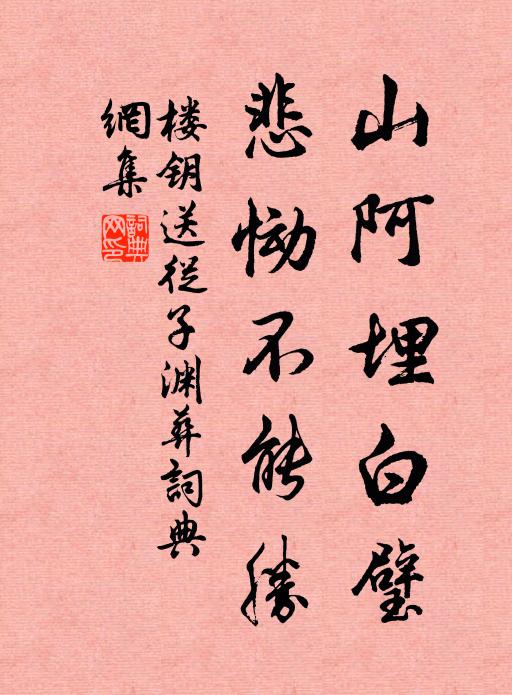 山阿埋白璧
悲恸不能勝
楼钥送從子渊葬詞典
網集
詞典网印